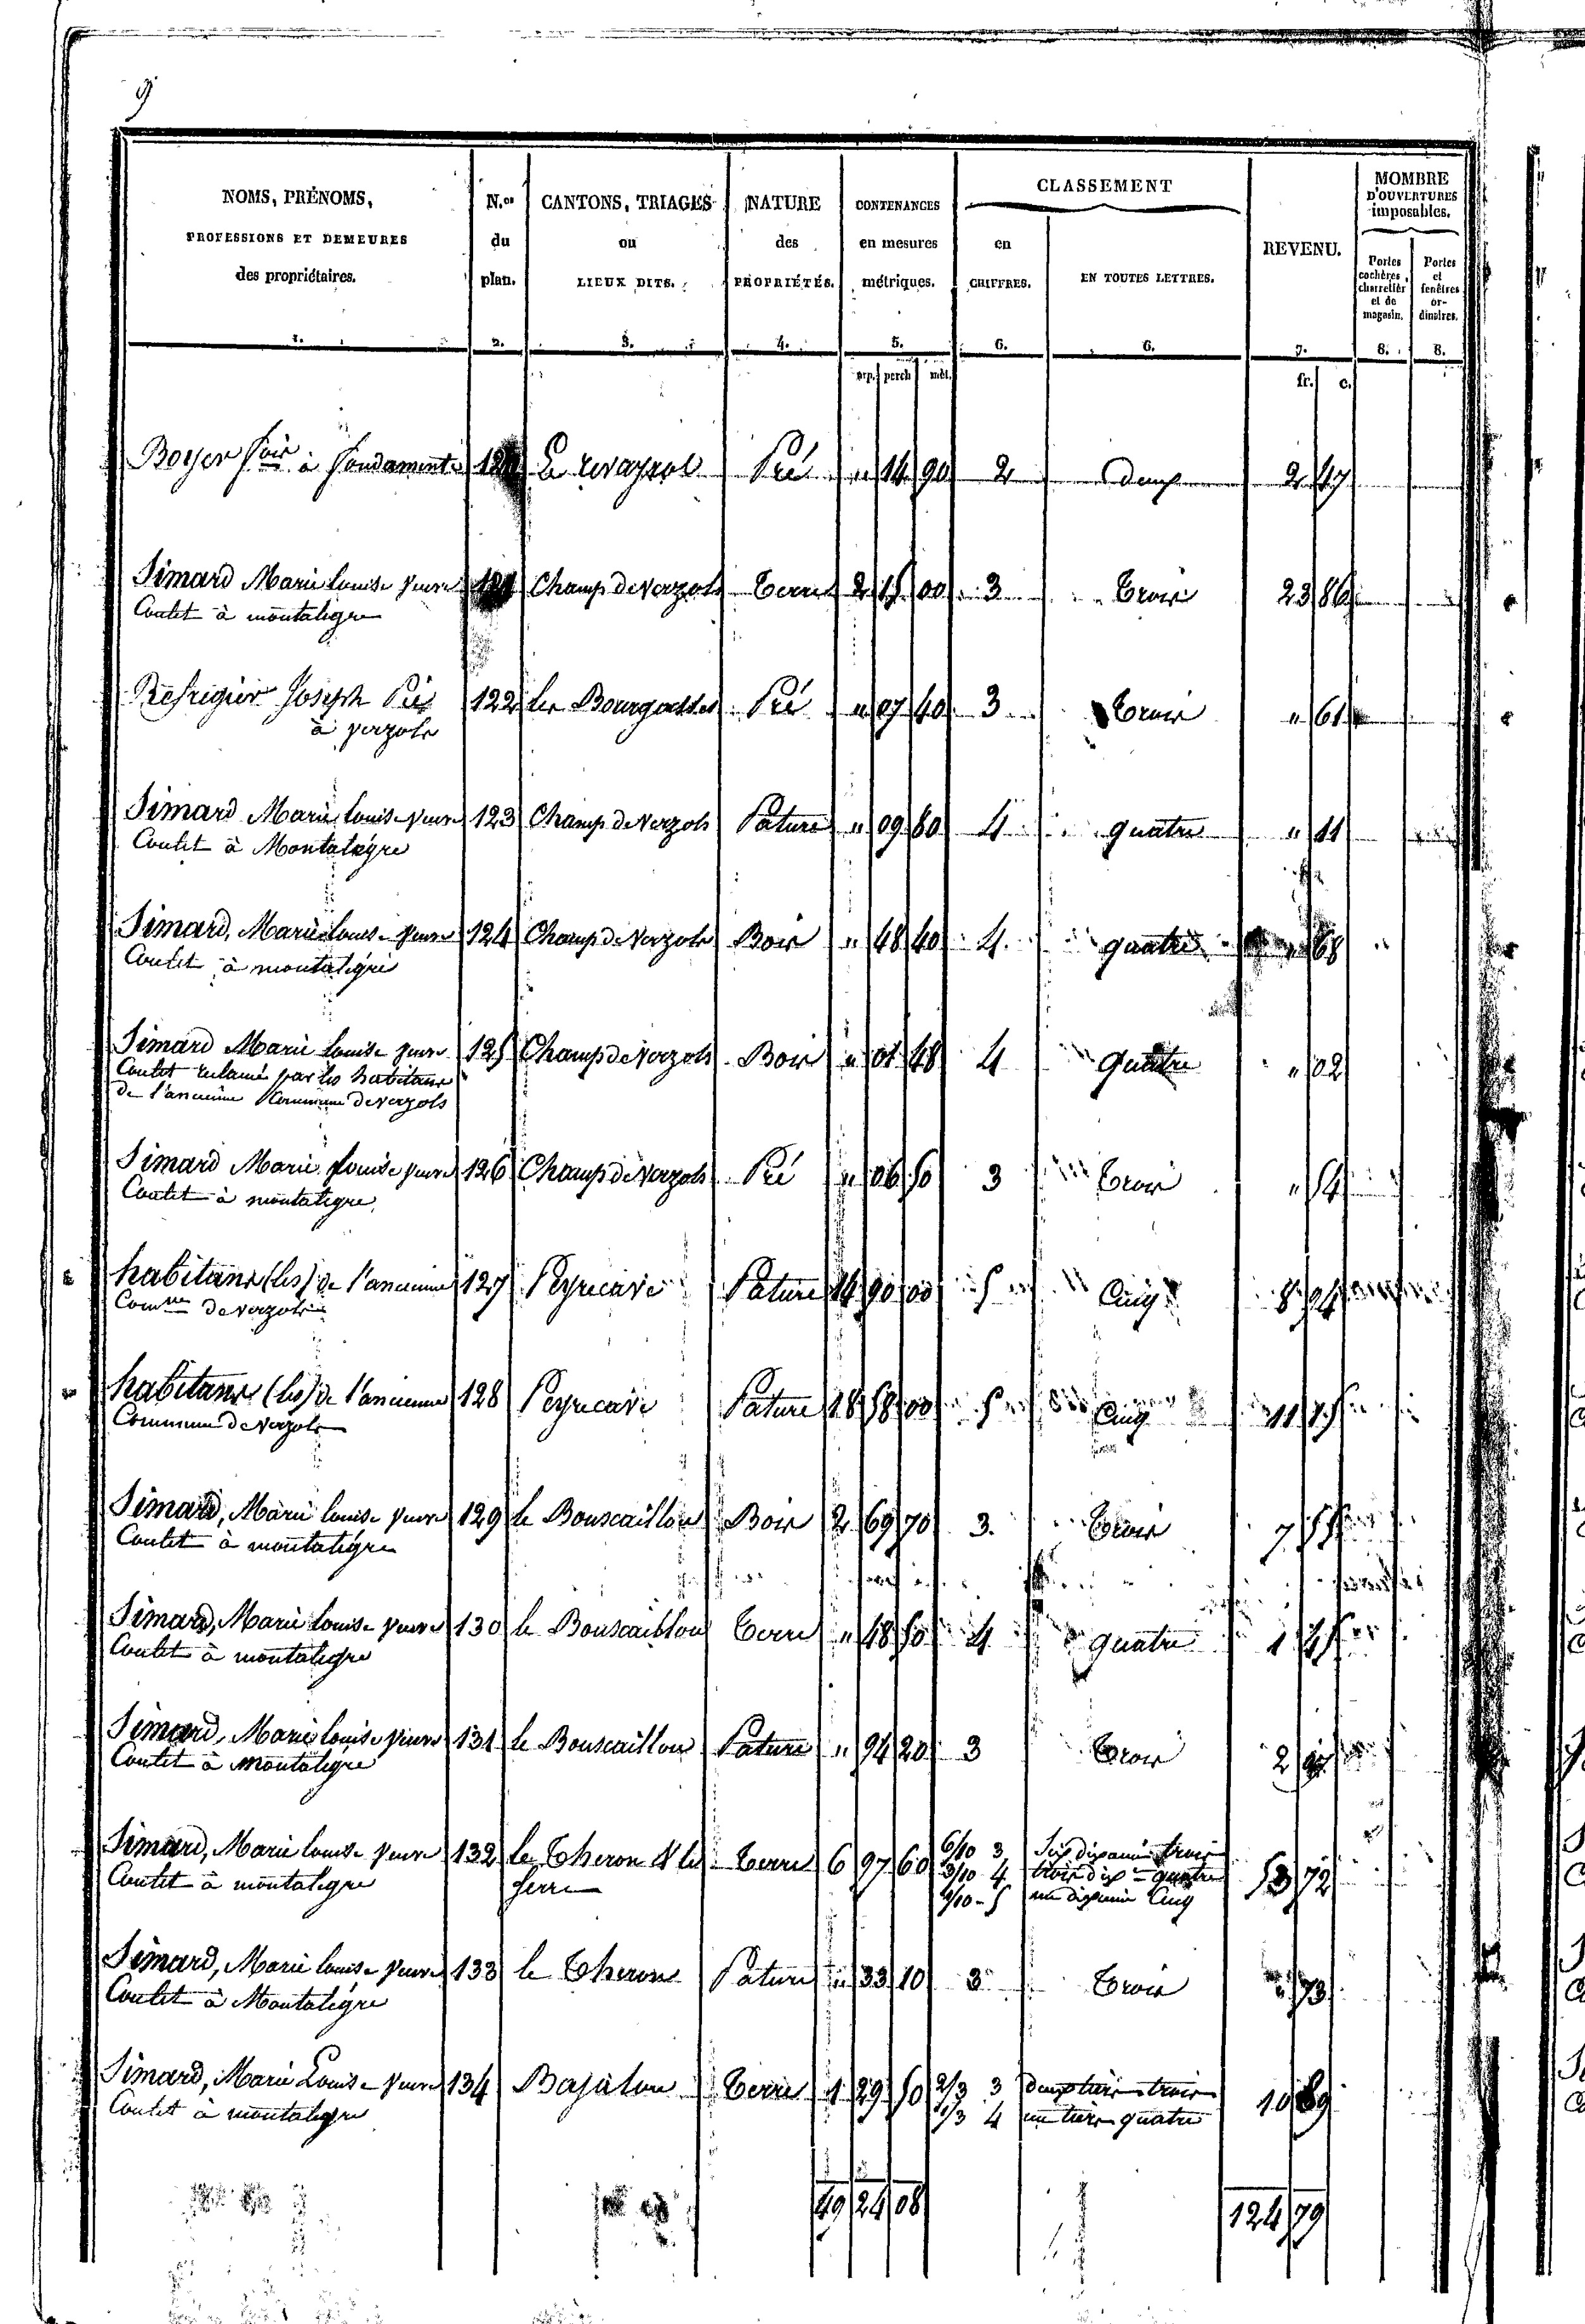 9
NOMS, PRÉNOMS, PROFESSIONS ET DEMEURES des propriétaires. 1.
N.os du plan. 2.
CANTONS, TRIAGES ou LIEUX DITS. 3.
NATURE des PROPRIÉTÉS. 4.
CONTENANCES en mesures métriques. 5.
CLASSEMENT
en CHIFFRES. 6.
EN TOUTES LETTRES. 6.
REVENU. 7.
MOMBRE D'OUVERTURES imposables.
Portes cochères, charretièr et de magasin. 8.
Portes et fenêtres ordinaires. 8.
arp. perch mèt. fr. c.
Boyer à fondamente Pré " 14 90 2 deux 2 47
Simard Marie Louise veuve 121 Champ de Verzols Terre 2 15 00 3 trois 23 86
Coulet à montalegre
Refrigier Joseph 122 les Bourgasses Pré " 07 40 3 trois " 61
à verzols
Simard Marie Louise veuve 123 Champ de Verzols Pature " 09 80 4 quatre " 11
Coulet à Montalégre
Simard, Marie Louise veuve 124 Champ de Verzols Bois " 48 40 4 quatre " 68
Coulet à montalégre
Simard Marie Louise veuve 125 Champ de Verzols Bois " 01 48 4 quatre " 02
Coulet reclamé par les habitans
de l'ancienne Commune de verzols
Simard Marie Louise veuve 126 Champ de Verzols Pré " 06 50 3 trois " 54
Coulet à montalegre
habitans (les) de l'ancienne 127 Peyrecave Pature 14 90 00 5 Cinq 8 94
Comune de verzols
habitans (les) de l'ancienne 128 Peyrecave Pature 18 58 00 5 Cinq 11 15
Commune de verzols
Simard, Marie Louise veuve 129 le Bouscaillou Bois 2 69 70 3 trois 7 55
Coulet à montalégre
Simard, Marie Louise veuve 130 le Bouscaillou Terre " 48 50 4 quatre 1 45
Coulet à montalegre
Simard, Marie Louise veuve 131 le Bouscaillou Pature " 94 20 3 trois 2
Coulet à montalégre
Simard, Marie Louise veuve 132 le Theron & les Terre 6 97 60 6/10 3 Six dixiemes trois 53 72
Coulet à montalegre 3/10 4 trois dix = quatre
1/10 - 5 un dixieme Cinq
Simard, Marie Louise veuve 133 le Theron Pature " 33 10 3 trois " 73
Coulet à Montalégre
Simard, Marie Louise veuve 134 Bajalou Terre 1 29 50 2/3 3 deux tiers trois 10 89
Coulet à montalegre 1/3 4 un tiers quatre
49 24 08 124 79